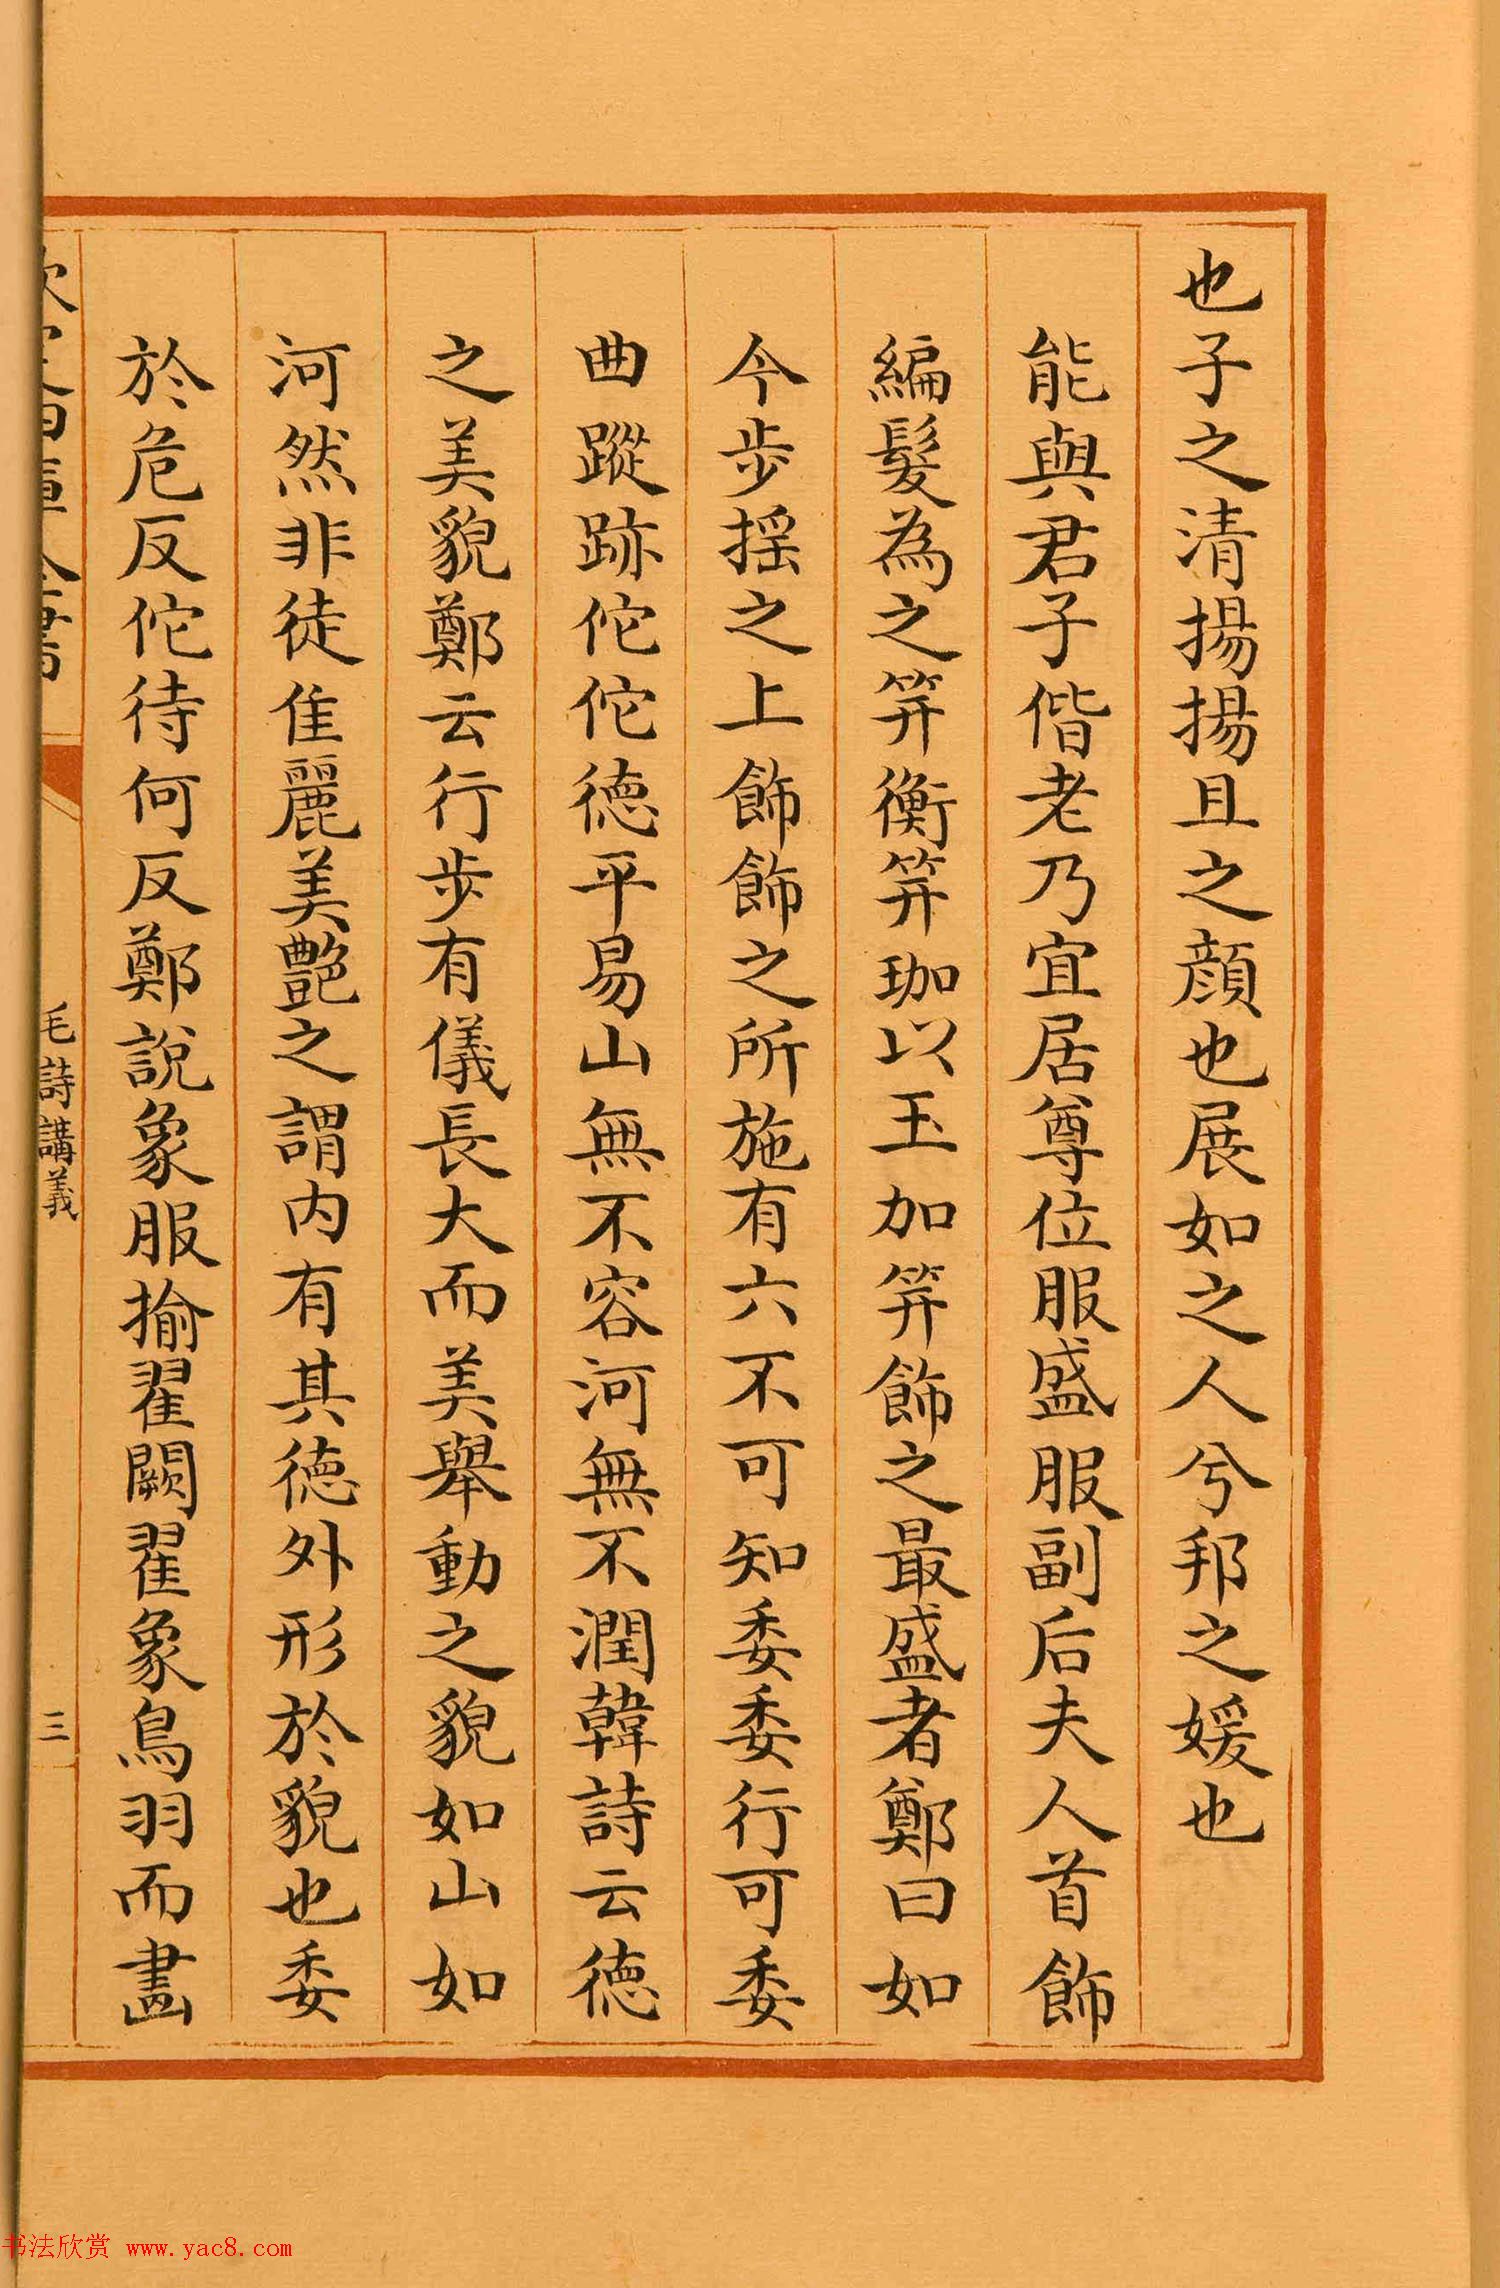 也子之清揚揚且之顔也展如之人兮邦之媛也
能與君子偕老乃宜居尊位服盛服副后夫人首飾
編髮為之笄衡笄珈以玉加笄飾之最盛者鄭曰如
今步摇之上飾飾之所施有六不可知委委行可委
曲蹤跡佗佗德平易山無不容河無不潤韓詩云德
之美貌鄭云行步有儀長大而美舉動之貌如山如
河然非徒隹麗美艶之謂内有其德外形於貌也委
於危反佗待何反鄭說象服揄翟闕翟象鳥羽而畫
欽定四庫全書
毛詩講義
三
书法欣赏 www.yac8.com